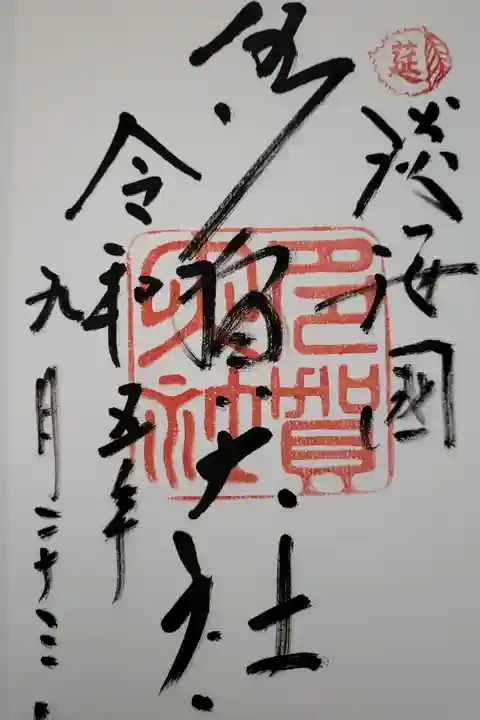 延
淡海國
多賀大社
多賀
大社
令和五年
九月二十三日